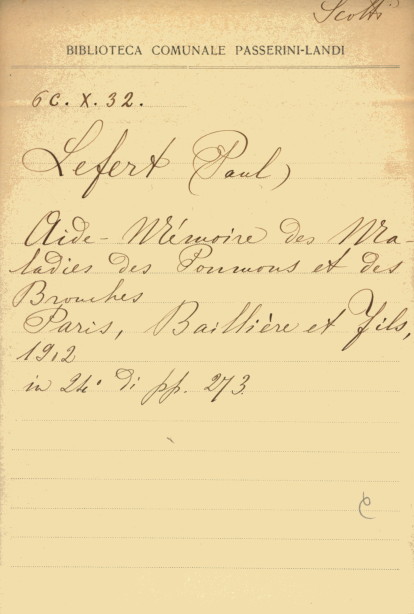 Scotti
BIBLIOTECA COMUNALE PASSERINI-LANDI
6C. X. 32.
Lefert (Paul)
Aide-Mémoire des Ma-
ladies des Poumons et des
Bronches
Paris, Baillière et Fils,
1912
in 24° di pp. 273